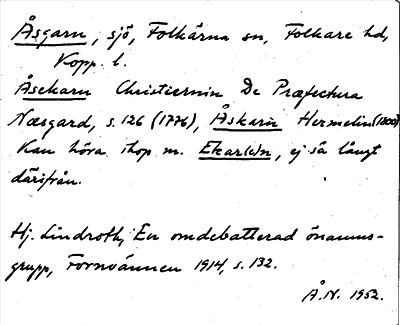 Åsgarn, sjö, Folkärna sn, Folkare hd,
Kopp. l.
Åsekarn Christiernin De Præfectura
Næsgard, s. 126 (1776), Åskarn Hermelin (1800)
Kan höra ihop m. Ekar(e)n, ej så långt
därifrån.
Hj. Lindroth, En omdebatterad önamns-
grupp, Fornvännen 1914, s. 132.
Å.N. 1952.